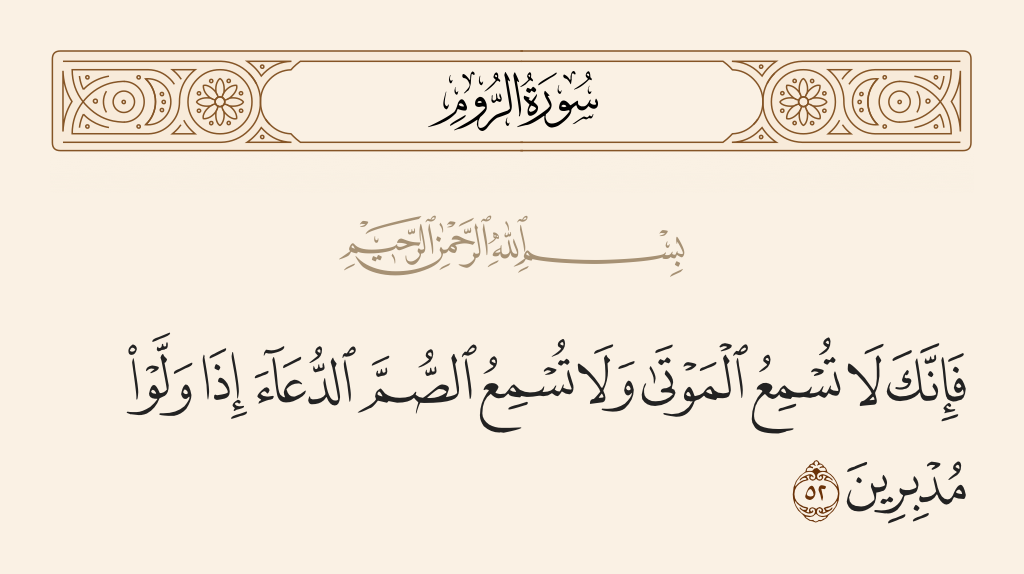 سُورَةُ الرُّومِ
بِسْمِ ٱللَّهِ ٱلرَّحْمَٰنِ ٱلرَّحِيمِ
فَإِنَّكَ لَا تُسْمِعُ ٱلْمَوْتَىٰ وَلَا تُسْمِعُ ٱلصُّمَّ ٱلدُّعَآءَ إِذَا وَلَّوْا۟
مُدْبِرِينَ ٥٢